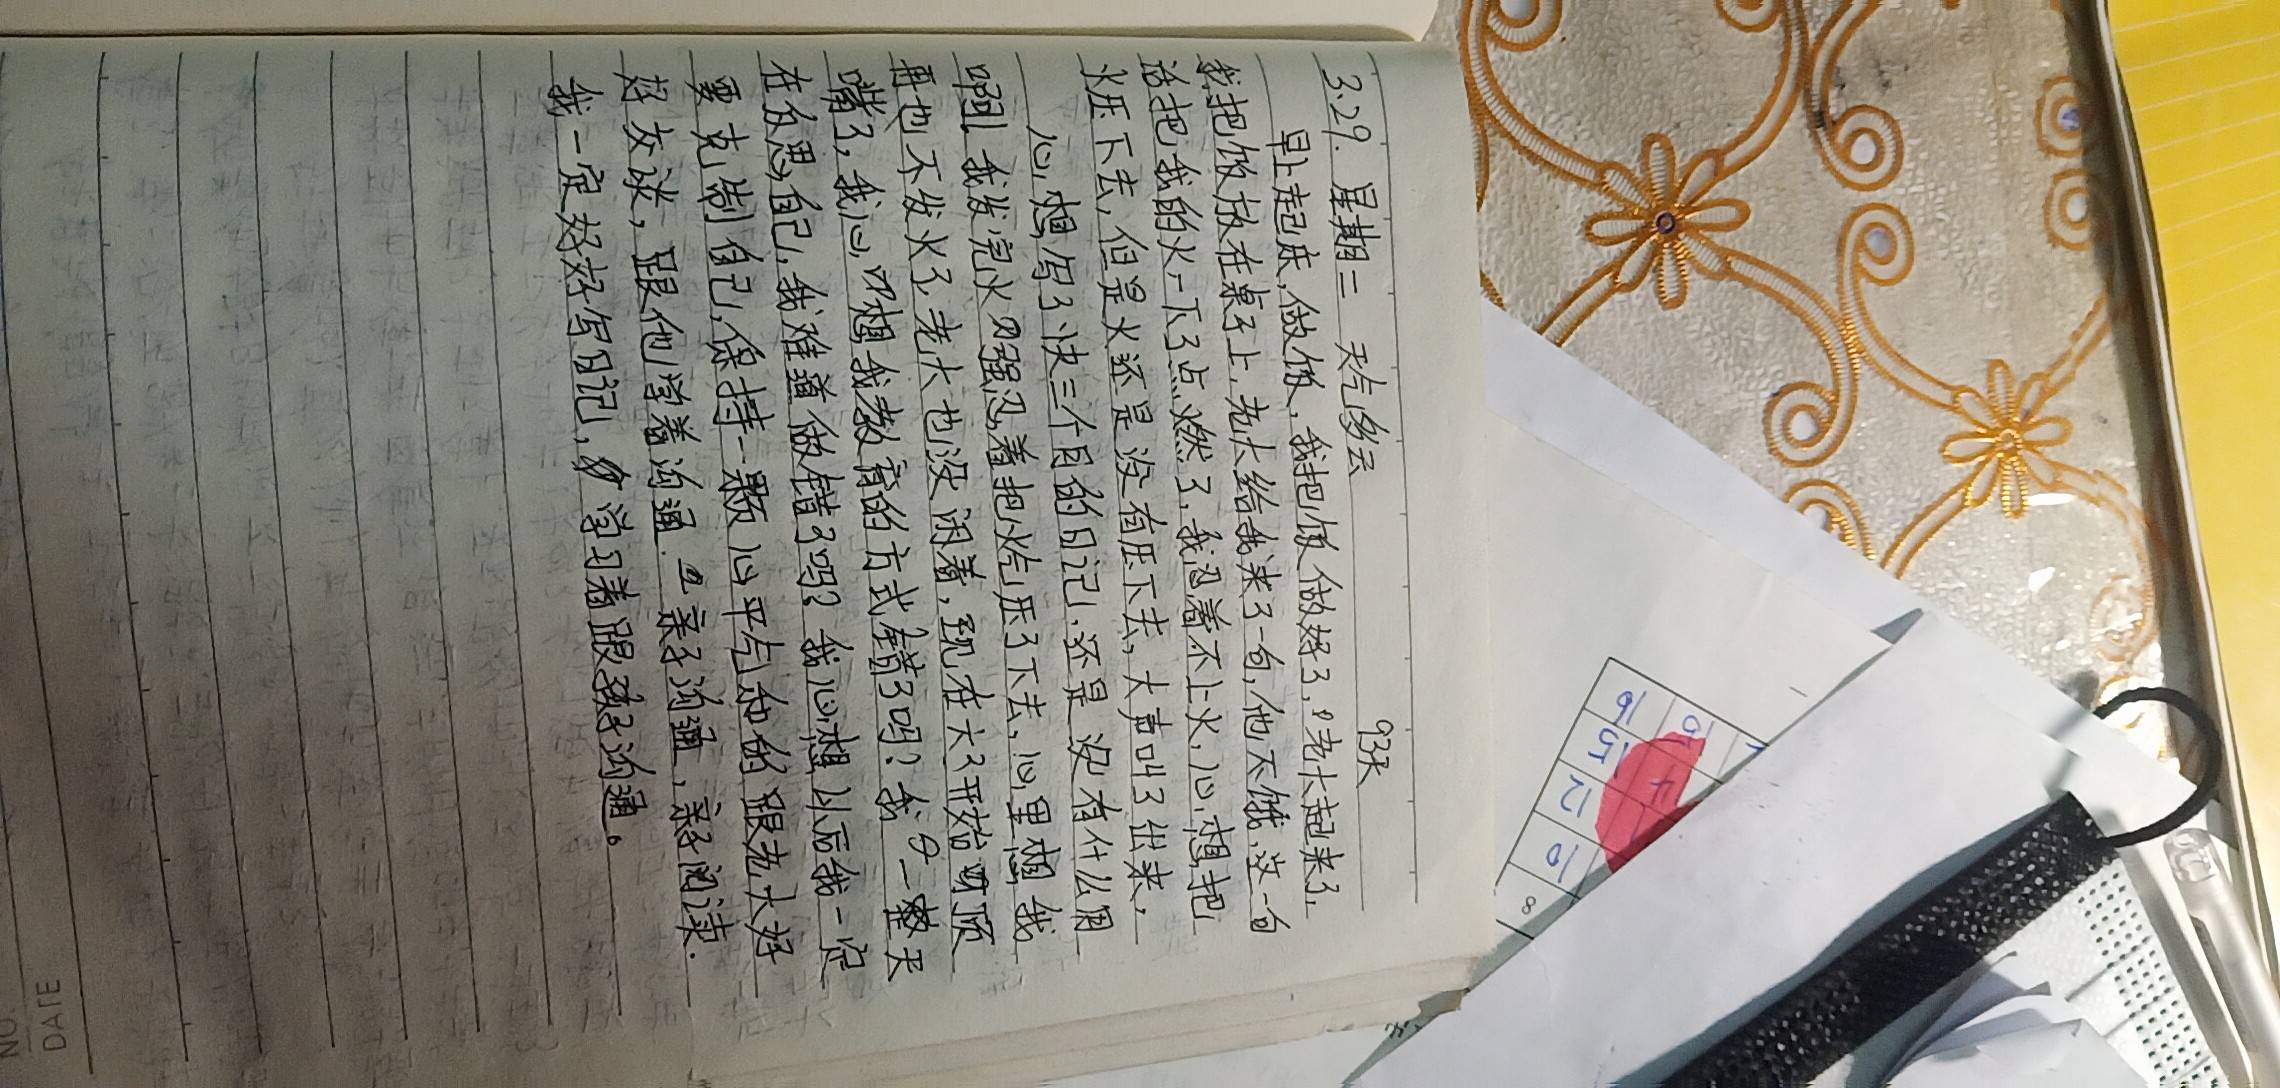 3.29. 星期二 天气多云 93天
早上起床,做饭,我把饭做好了,老大起来了,
我把饭放在桌子上,老大给我来了一句,他不饿,这一句
话把我的火一下子点燃了,我忍着不上火,心想把
火压下去,但是火还是没有压下去,大声叫了出来,
心想写了快三个月的日记,还是没有什么用
啊!我发完火又强忍着把火气压了下去,心里想我
再也不发火了,老大也没闲着,现在大了开始顶
嘴了,我心中想我教育的方式错了吗?我一整天
在反思自己,我难道做错了吗?我心想以后我一定
要克制自己,保持一颗心平气和的跟老大好
好交谈,跟他学着沟通.亲子沟通,亲子阅读.
我一定好好写日记,学习着跟孩子沟通。
16 15 12 10 8
NO.
DATE